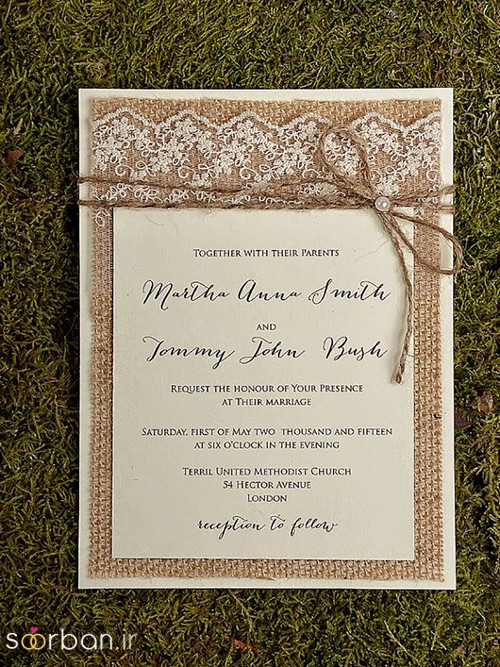 Together with their Parents
Martha Anna Smith
and
Tommy John Bush
Request the honour of Your Presence
at Their marriage
Saturday, first of May two thousand and fifteen
at six o'clock in the evening
Terril United Methodist Church
54 Hector Avenue
London
reception to follow
soorban.ir